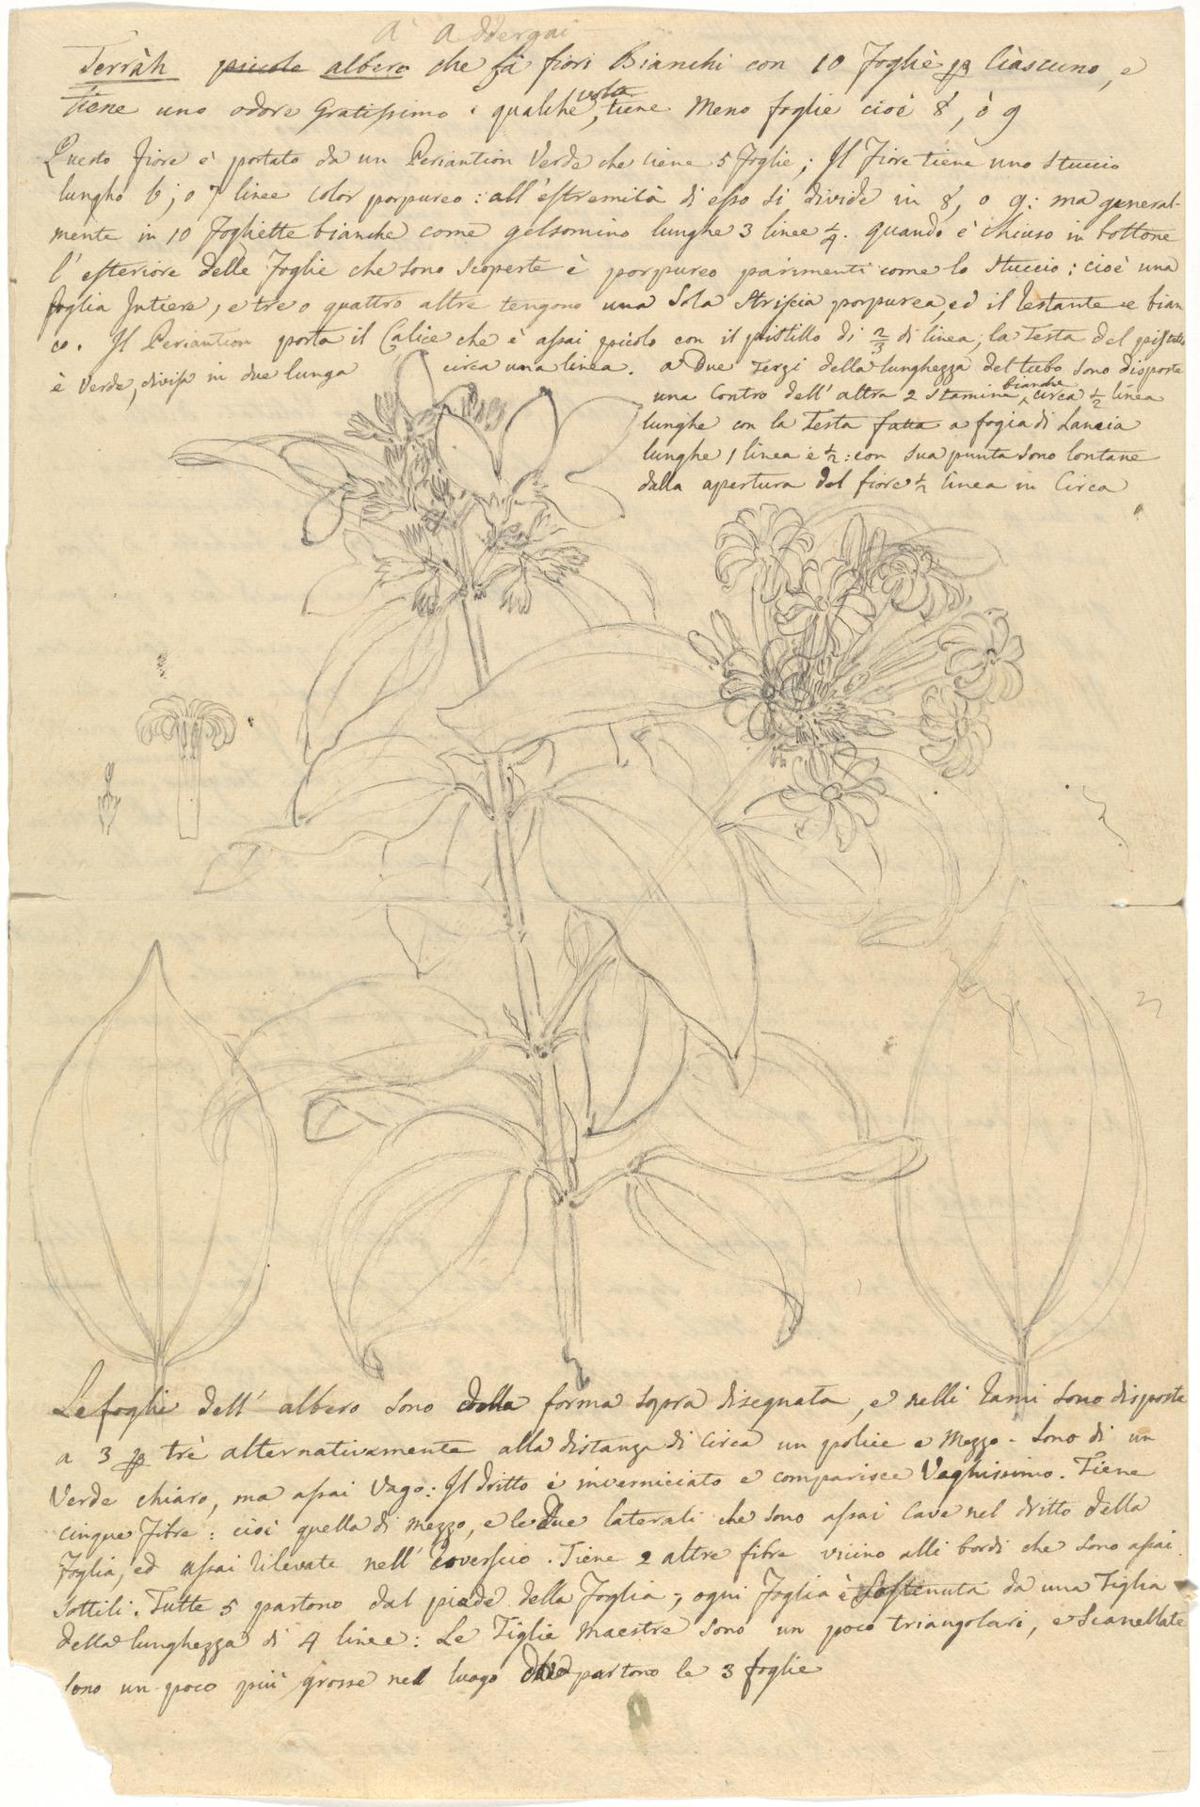 A Addergai
Terràh piccolo albero che fà fiori Bianchi con 10 foglie p ciascuno, e
tiene uno odore Gratissimo : qualche volta, tiene Meno foglie cioè 8, ò 9
Questo fiore è portato da un Periantion Verde che tiene 5 foglie ; Il Fiore tiene uno stuccio
lungho 6 ; o 7 linee color porpureo : all'estremità di esso si divide in 8, o 9 : ma general-
mente in 10 fogliette bianche come gelsomino lunghe 3 linee 1/4. quando è chiuso in bottone
l'esteriore delle foglie che sono scoperte è porpureo parimenti come lo stuccio : cioè una
foglia Intiera, e tre o quattro altre tengono una sola striscia porpurea, ed il restante e bian
co. Il Periantion porta il Calice che è assai picolo con il pistillo di 2/3 di linea ; la testa del pistillo
è Verde, divisa in due lunga circa una linea. a Due terzi della lunghezza del tubo sono disposte
una Contro dell'altra 2 stamina bianche circa 1/2 linea
lunghe con la Testa fatta a fogia di Lancia
lunghe 1 linea e 1/2 : con sua punta sono lontane
dalla apertura del fiore 1/2 linea in Circa
Le foglie dell'albero sono della forma sopra disegnata, e nelli rami sono disposte
a 3 p trè alternativamente alla distanza di Circa un police e Mezzo - sono di un
Verde chiaro, ma assai Vago : Il dritto è inverniciato e comparisce Vaghissimo. Tiene
cinque fibre : cioè quella di mezzo, e le Due laterali che sono assai Cave nel dritto della
foglia, ed assai rilevate nell' roverscio. Tiene 2 altre fibre vicino alli bordi che sono assai
sottili. Tutte 5 partono dal piede della foglia ; ogni foglia è sostenuta da una Tiglia
della lunghezza di 4 linee : Le Tiglie maestre sono un poco triangolari, e scanellate
sono un poco più grosse nel luogo partono le 3 foglie